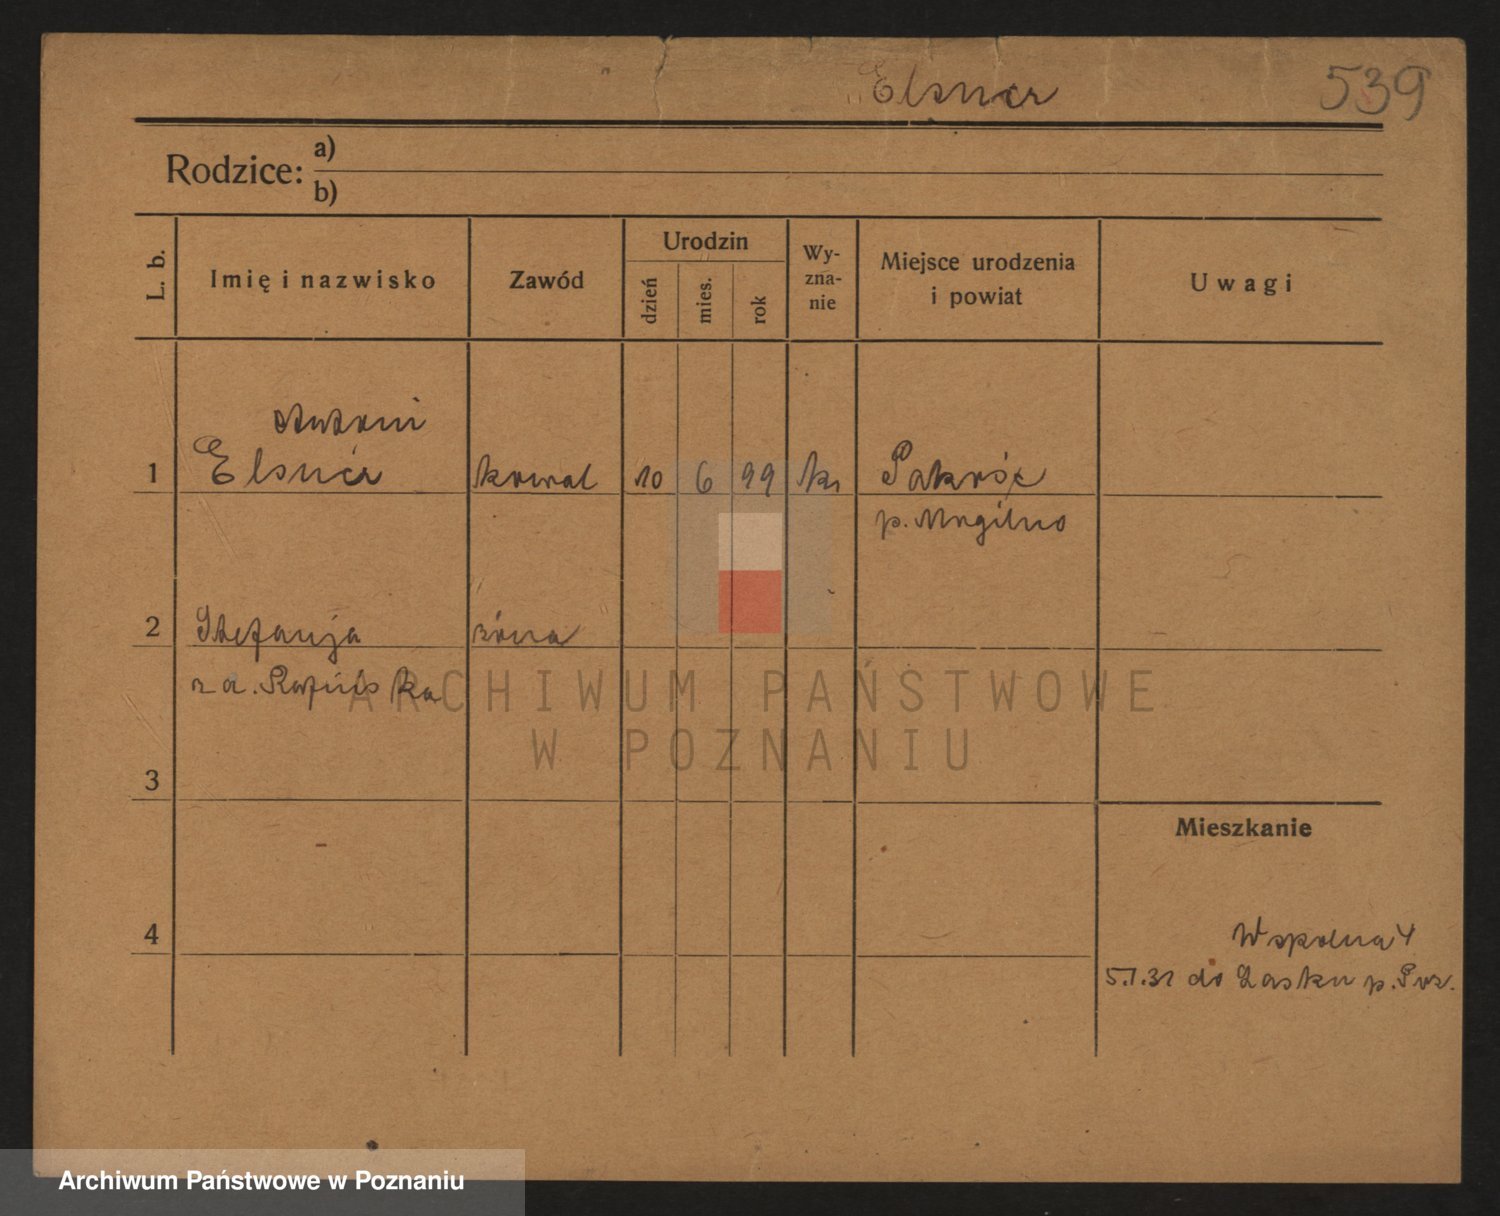 Elsner
539
Rodzice: a)
b)
L. b.
Imię i nazwisko
Zawód
Urodzin
dzień
mies.
rok
Wy-
zna-
nie
Miejsce urodzenia
i powiat
Uwagi
Antoni
1 Elsner kowal 10 6 99 kr Pakość
p. Mogilno
2 Stefanja żona
z d.
3
Mieszkanie
4
Wspólna 4
5.I.31 do Lasku p. Poz.
ARCHIWUM PAŃSTWOWE
W POZNANIU
Archiwum Państwowe w Poznaniu